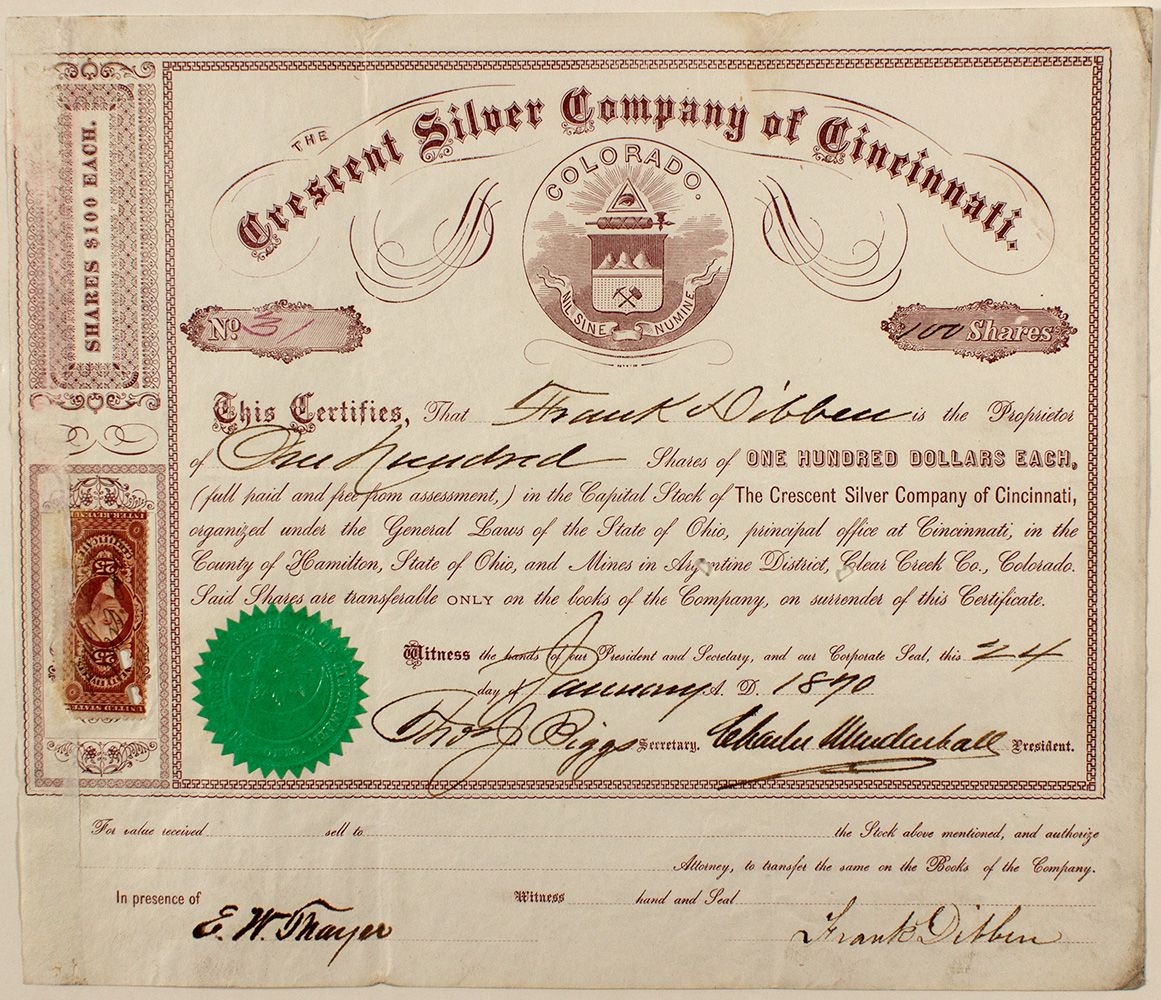 SHARES $100 EACH.
THE
Crescent Silver Company of Cincinnati.
COLORADO.
NIL SINE NUMINE
No 31
100 Shares
This Certifies, That Frank Dibben is the Proprietor
of One Hundred Shares of ONE HUNDRED DOLLARS EACH,
(full paid and free from assessment,) in the Capital Stock of The Crescent Silver Company of Cincinnati,
organized under the General Laws of the State of Ohio, principal office at Cincinnati, in the
County of Hamilton, State of Ohio, and Mines in Argentine District, Clear Creek Co., Colorado.
Said Shares are transferable ONLY on the books of the Company, on surrender of this Certificate.
Witness the hands of our President and Secretary, and our Corporate Seal, this 24
day of January A. D. 1870
Thos J Biggs Secretary. Charles Mendenhall President.
25 25
UNITED STATES
INTER. REV.
For value received sell to the Stock above mentioned, and authorize
Attorney, to transfer the same on the Books of the Company.
In presence of Witness hand and Seal
E. W. Thayer Frank Dibben